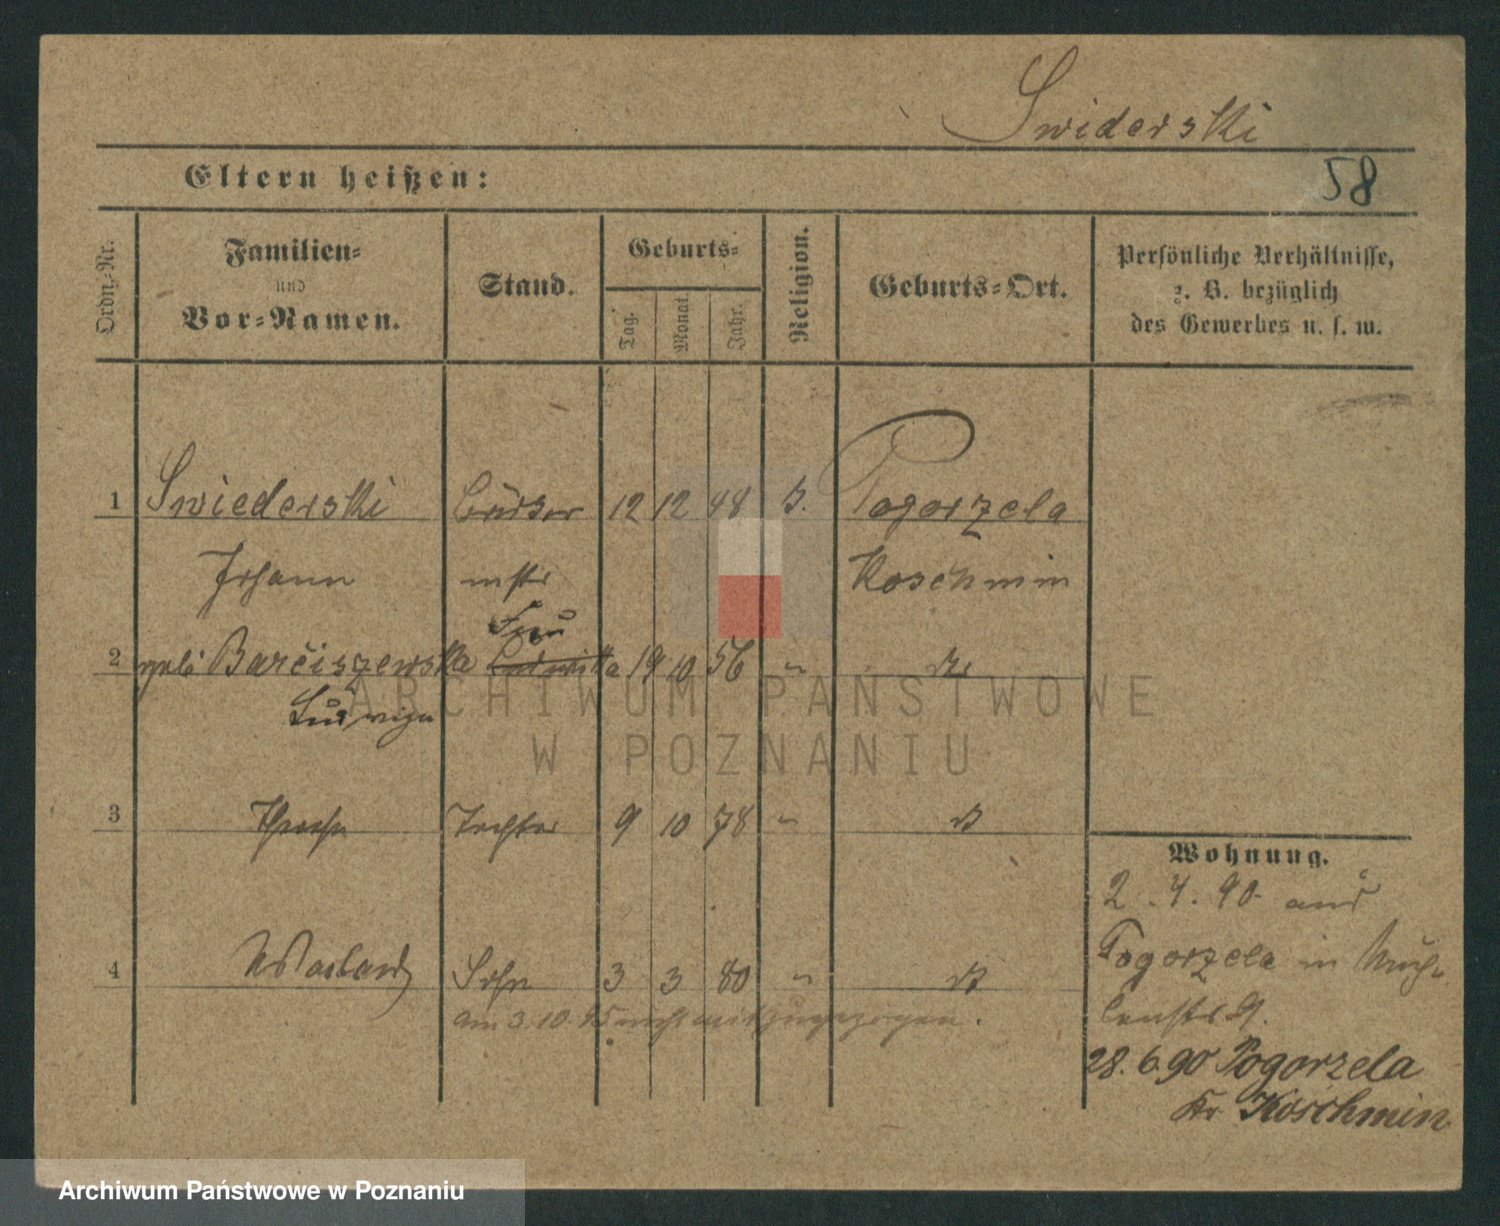 Swiderski
Eltern heißen:
58
Ordn.-Nr.
Familien-
und
Vor-Namen.
Stand.
Geburts-
Tag.
Monat.
Jahr.
Religion.
Geburts-Ort.
Persönliche Verhältnisse,
z. B. bezüglich
des Gewerbes u. s. w.
1 Swiederski 12 12 48 k. Pogorzela
Johann mstr Koschmin
Frau
2 geb. Barciszewska Ludwika 19 10 56 "
Ludwiga
3 Tochter 9 10 78 "
4 Sohn 3 3 80 "
am 3.10.95 nicht mit zugezogen.
Wohnung.
2.4.90 aus
Pogorzela in Müh-
lenstr 9.
28.6.90 Pogorzela
Kr Koschmin
ARCHIWUM PAŃSTWOWE
W POZNANIU
Archiwum Państwowe w Poznaniu